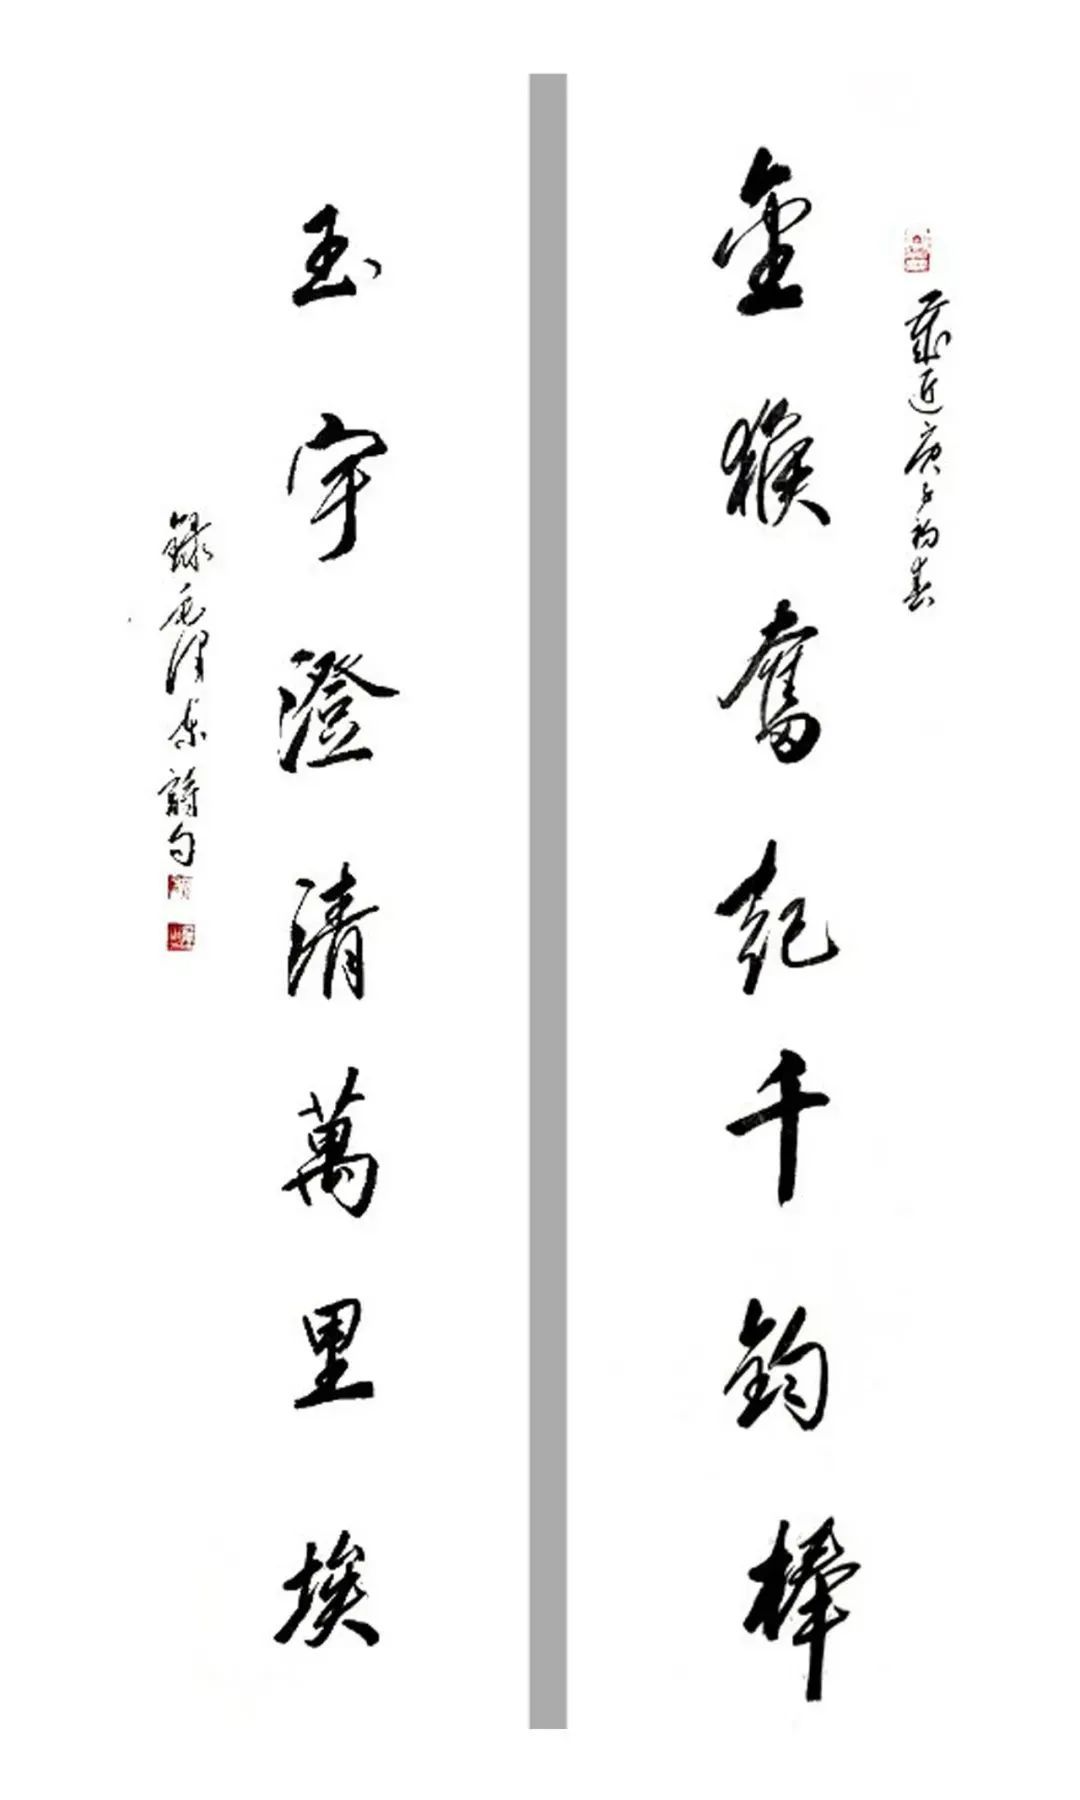 歲近庚子初春
金猴奮起千鈞棒
玉宇澄清萬里埃
錄毛澤東詩句